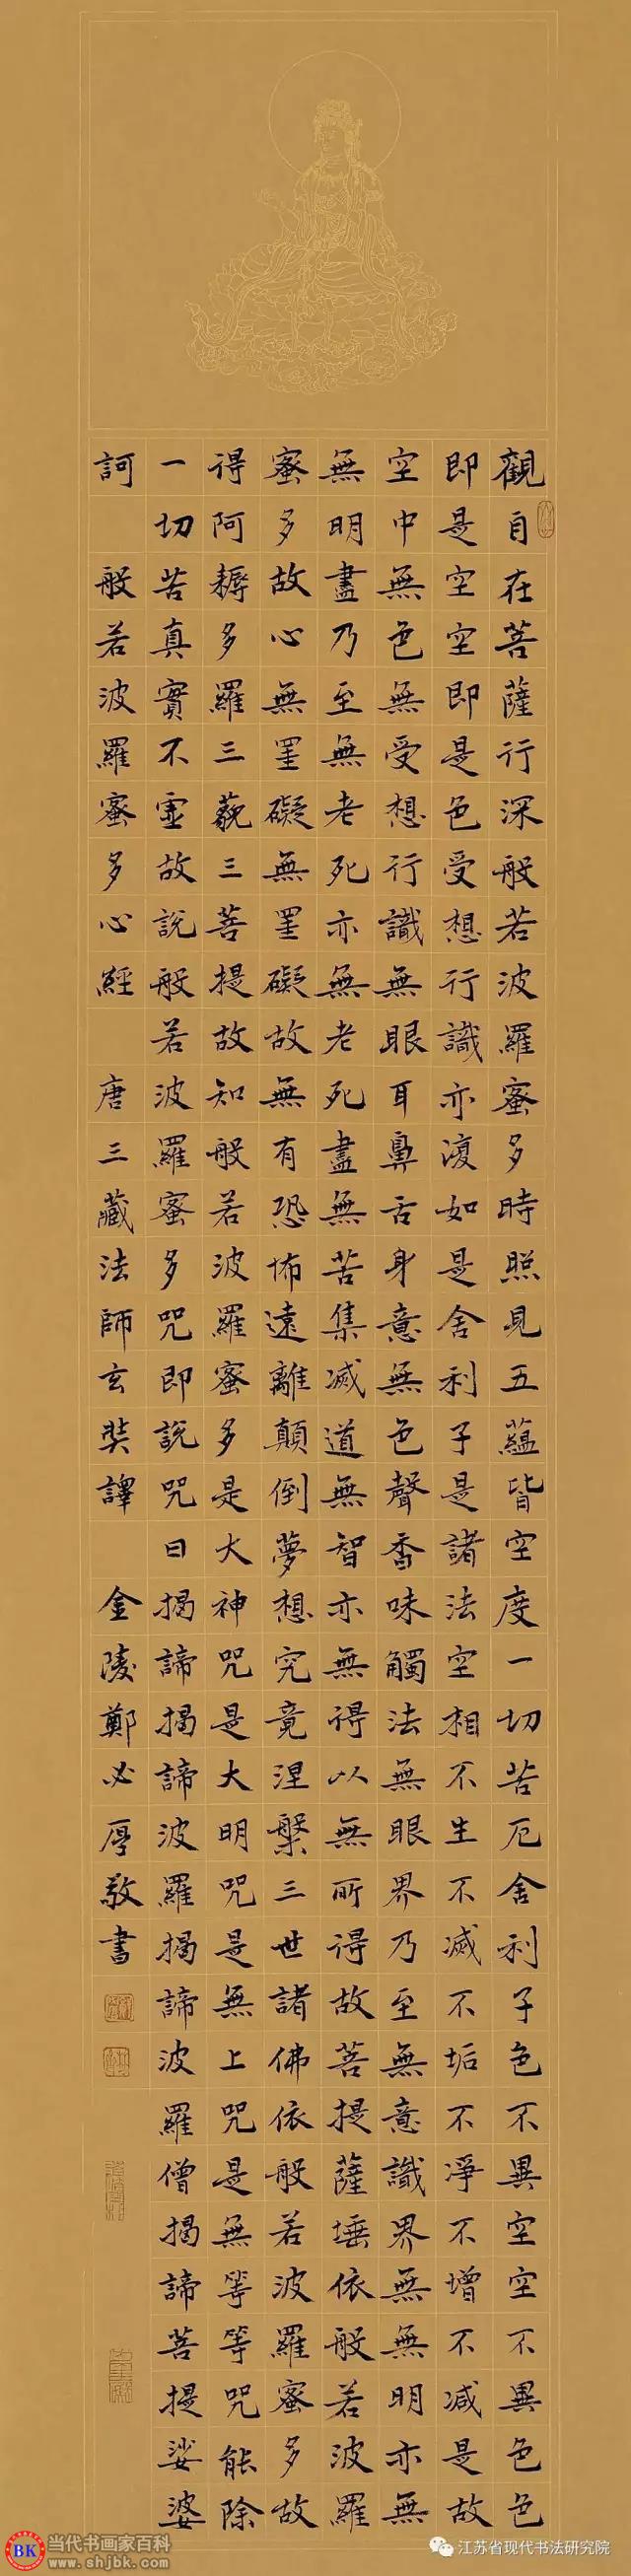 觀自在菩薩行深般若波羅蜜多時照見五蘊皆空度一切苦厄舍利子色不異空空不異色色
即是空空即是色受想行識亦復如是舍利子是諸法空相不生不滅不垢不淨不增不減是故
空中無色無受想行識無眼耳鼻舌身意無色聲香味觸法無眼界乃至無意識界無無明亦無
無明盡乃至無老死亦無老死盡無苦集滅道無智亦無得以無所得故菩提薩埵依般若波羅
蜜多故心無罣礙無罣礙故無有恐怖遠離顛倒夢想究竟涅槃三世諸佛依般若波羅蜜多故
得阿耨多羅三藐三菩提故知般若波羅蜜多是大神咒是大明咒是無上咒是無等等咒能除
一切苦真實不虛故說般若波羅蜜多咒即說咒曰揭諦揭諦波羅揭諦波羅僧揭諦菩提娑婆
訶 般若波羅蜜多心經 唐三藏法師玄奘譯 金陵鄭必厚敬書
BK 当代书画家百科
www.shjbk.com
江苏省现代书法研究院